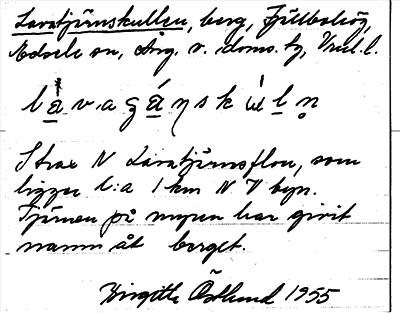 Lavatjärnskullen, berg, Fjällboberg,
Edsele sn, Ång. v. doms. tg, Vnl. l.
Strax N Lavatjärnsflon, som
ligger c:a 1 km N V byn.
Tjärnen på myren har givit
namn åt berget.
Birgitta Östlund 1955